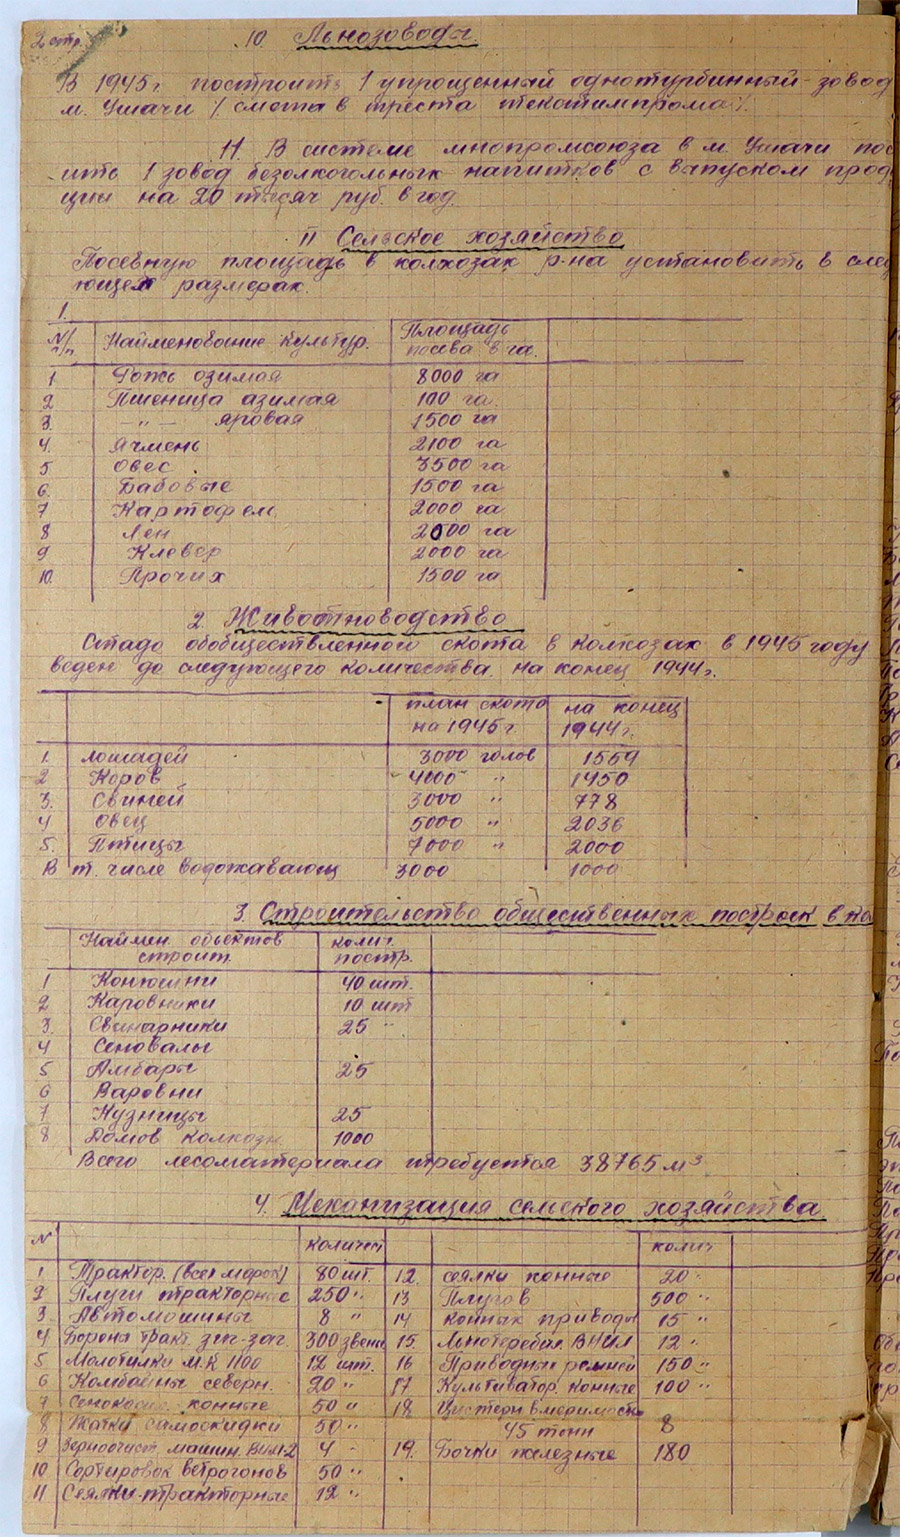 2 стр.
10. Льнозоводы.
В 1945 г. построить 1 упрощенный однотурбинный зовод
м. Ушачи /смота в треста
11. В системе мнопромсоюза в м. Ушачи пос
ить 1 зовод безолкогольных напитков с выпуском прод
ции на 20 тысяч руб. в год.
II Сельское хозяйство
Посевную площадь в колхозах р-на установить в след
ующем размерах.
1.
N/ п/п Найменование культур. Площадь
посева в га.
1. Рожь озимая 8000 га
2 Пшеница азимая 100 га
3. —"— яровая 1500 га
4. Ячмень 2100 га
5 Овес 3500 га
6. Бабовые 1500 га
7 Картофем 2000 га
8 Лен 2000 га
9 Клевер 2000 га
10. Прочих 1500 га
2 Животноводство
Стадо обобществленного скота в колхозах в 1945 году
веден до следующего количества. на конец 1944 г.
план скота на конец
на 1945 г. 1944 г.
1. лошадей 3000 голов 1559
2 Коров 4000 " 1450
3. Свиней 3000 " 778
4 Овец 5000 " 2036
5. Птицы 7000 " 2000
В т. числе водожавающ 3000 1000
3. Строительство общественных построек в ко
Наймен. объектов колич.
строит. постр.
1 Конюшни 40 шт.
2 Каровники 10 шт
3. Свинарники 25 "
4 Сеновалы
5 Амбары 25
6 Варовни
7 Кузницы 25
8 Домов колхозн. 1000
Всего лесоматериала требуется 38765 м³
4. Механизация сельского хозяйства
N количест колич
1 Трактор. (всех марок) 80 шт. 12. сеялки конные 20 "
2 Плуги тракторные 250 " 13 Плугов 500 "
3. Автомошины 8 " 14 конных приводы 15 "
4 Бороны тракт. зиг-заг. 300 звена 15. Льнотеребил. ВНИЛ 12 "
5 Молотилки М.К 1100 12 шт. 16 Приводных ремней 150 "
6 Комбайны северн. 20 " 17 Культиватор. конные 100 "
7 Сенокосил. конные 50 " 18 Цистерн вмеримость
8 Жатки самоскидки 50 " 45 тонн 8
9 Зерноочист. машин. ВИМ-2 4 - 19. Бочки железные 180
10 Сортировок ветрогонов 50 "
11 Сеялки тракторные 12 "